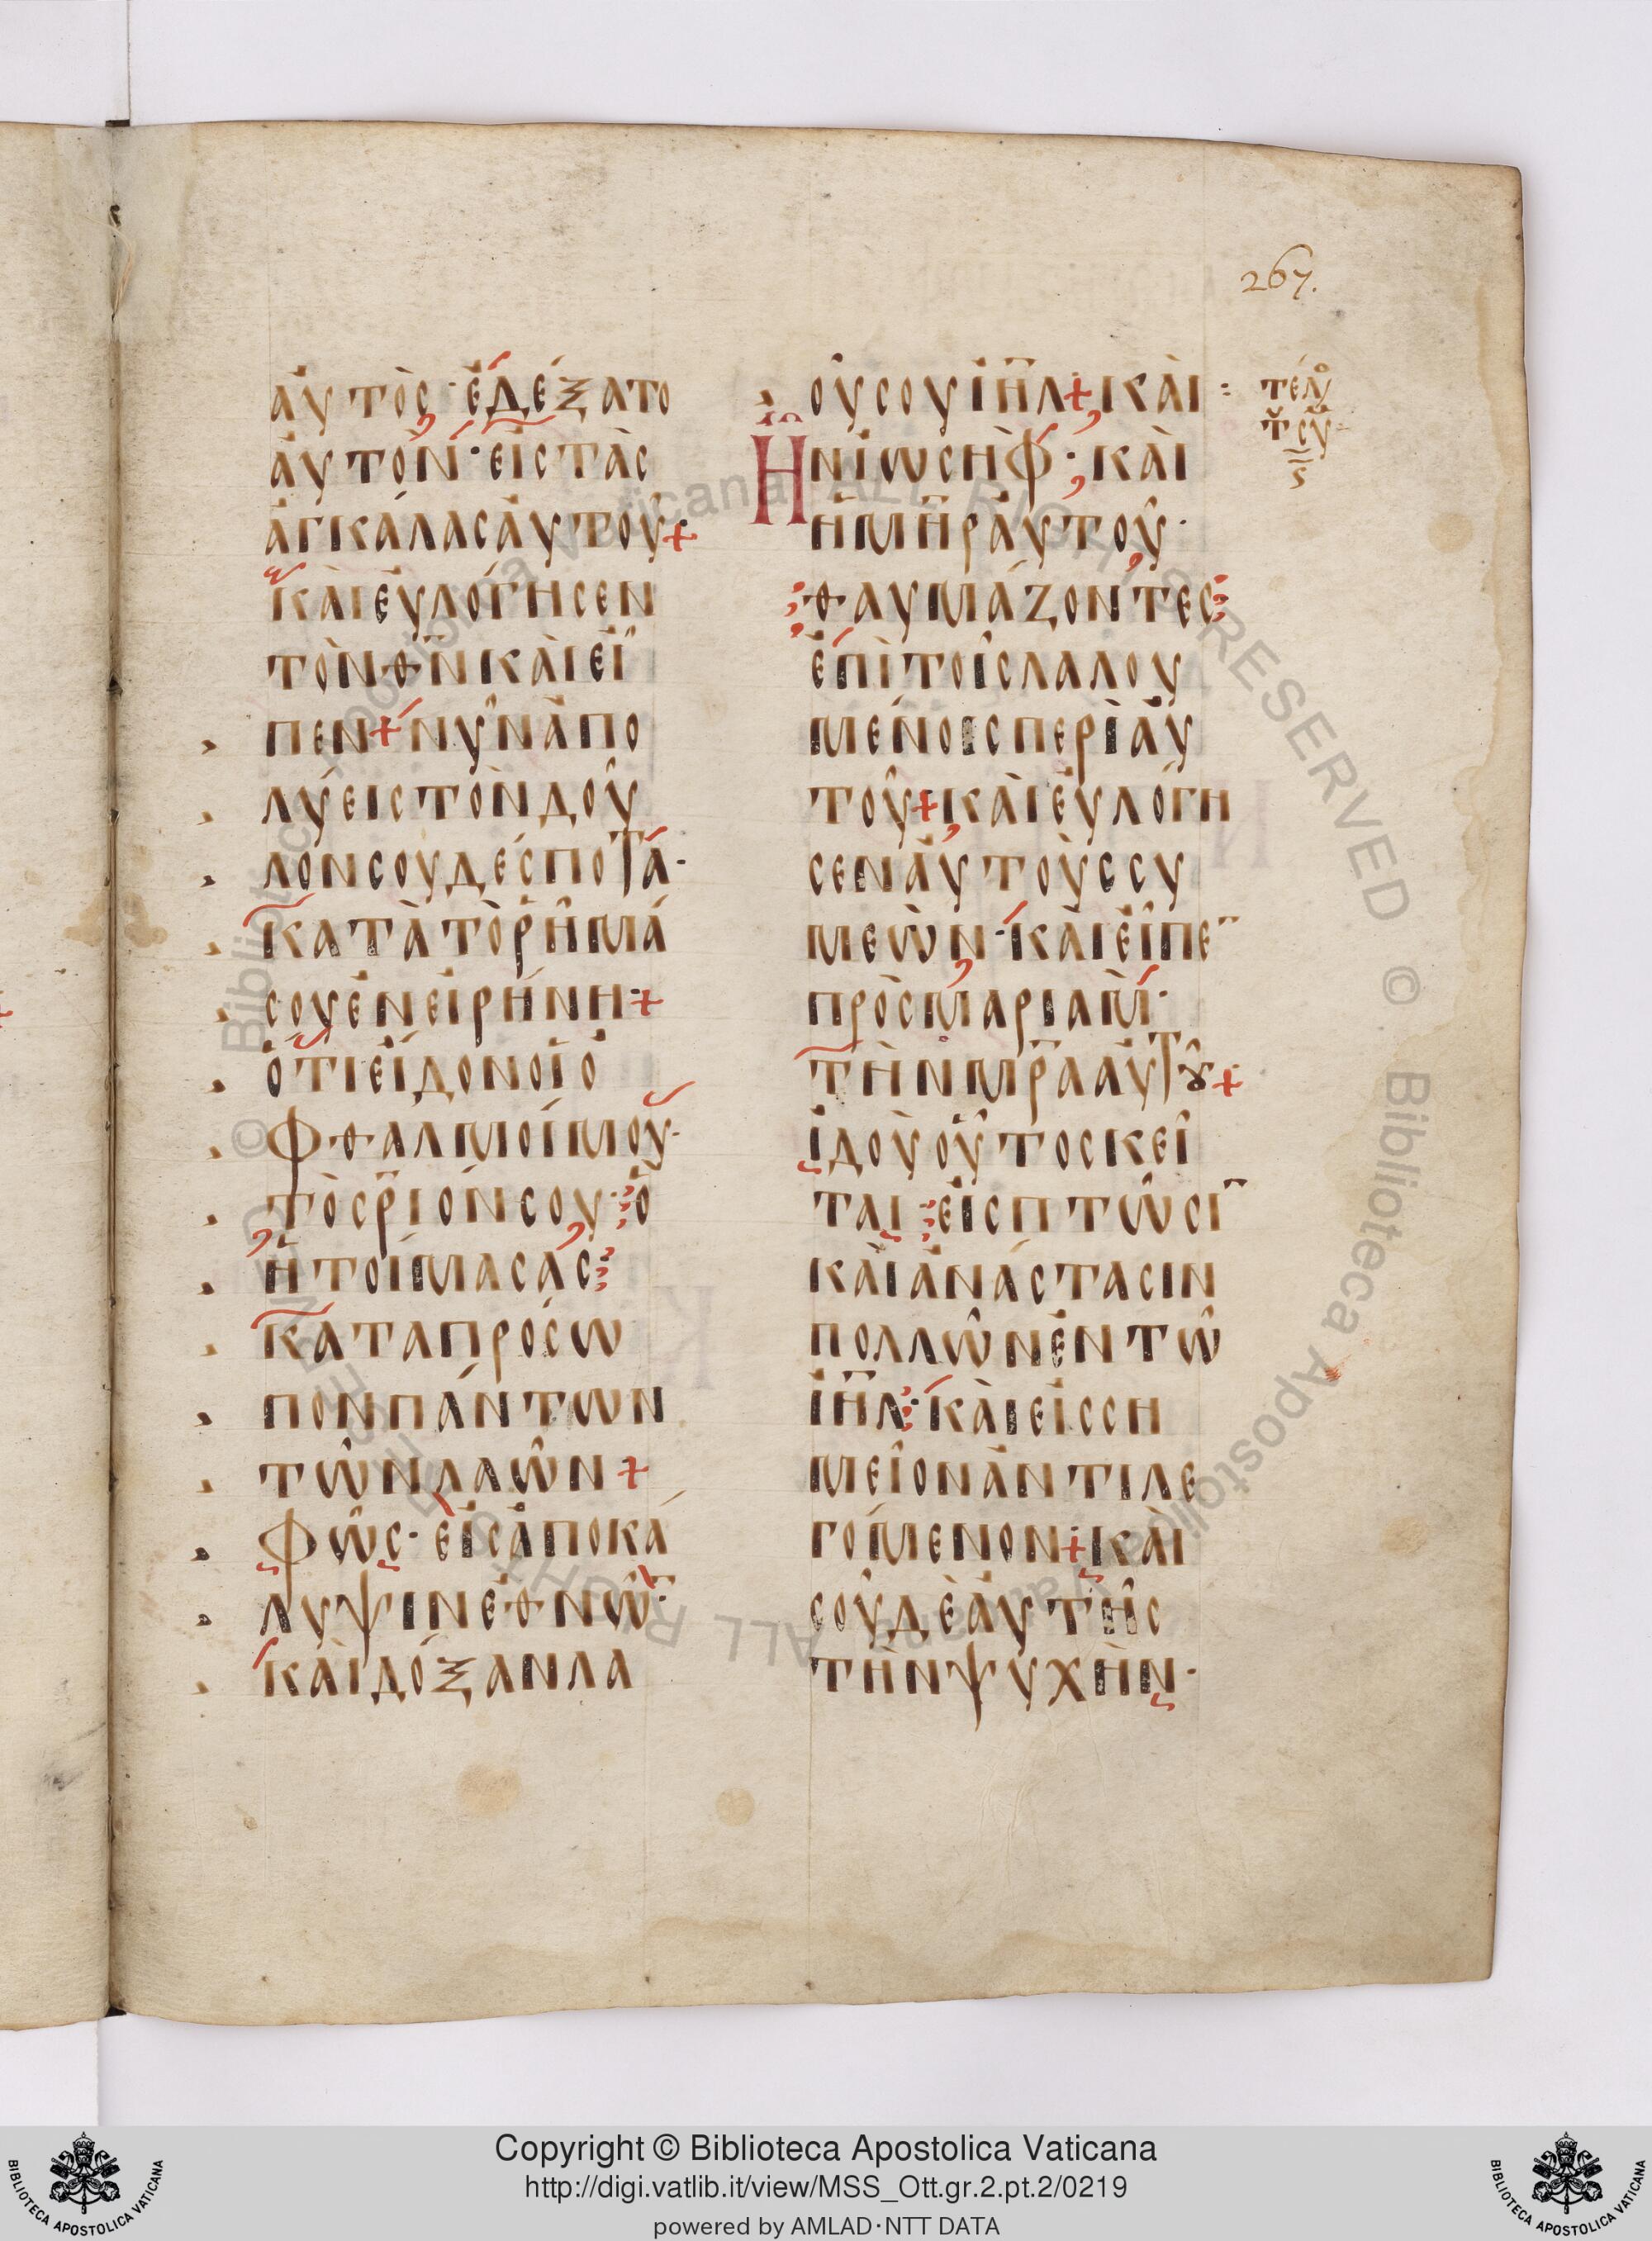 267.
ἀυτὸς· ἐδέξατο
ἀυτὸν· εἰς τὰς
ἀγκάλας ἀυτοῦ +
κὰι ἐυλόγησεν
τὸν θ̅ν̅ κὰι εἶ
πεν + νῦν ἀπο
λύεις τὸν δοῦ
λόν σου δέσποτα·
κατὰ τὸ ῥῆμά
σου ἐν εἰρήνη +
ὅτι εἶδον οἱ ὀ
φθαλμοί μου·
τὸ σ̅ρ̅ιόν σου· ὃ
ἡτοίμασας
κατα πρόσω
πον πάντων
τῶν λαῶν +
φῶς· εἰς ἀποκά
λυψιν ἐθνῶ̅·
κὰι δόξαν λα
οῦ σου ἰ̅η̅λ̅ + κὰι :
Ἦν ἰωσὴφ· κὰι
ἡ μ̅η̅ρ̅ ἀυτοῦ·
θαυμάζοντες
ἐπὶ τοῖς λαλου
μένοις περὶ ἀυ
τοῦ + κὰι ἐυλόγη
σεν ἀυτοὺς συ
μεὼν· κὰι εἶπε̅
πρὸς μαριὰμ·
τὴν μ̅ρ̅α̅ ἀυτȣ̂ +
ἰδοὺ οὗτος κεῖ
ται εἰς πτῶσι̅
κὰι ἀνάστασιν
πολλῶν ἐν τῶ
ἰ̅η̅λ̅· κὰι εἰς ση
μεῖον ἀντιλε
γόμενον + κὰι
σοῦ δὲ ἀυτῆς
τὴν ψυχὴν·
Copyright © Biblioteca Apostolica Vaticana
http://digi.vatlib.it/view/MSS_Ott.gr.2.pt.2/0219
powered by AMLAD·NTT DATA
BIBLIOTECA APOSTOLICA VATICANA
BIBLIOTECA APOSTOLICA VATICANA